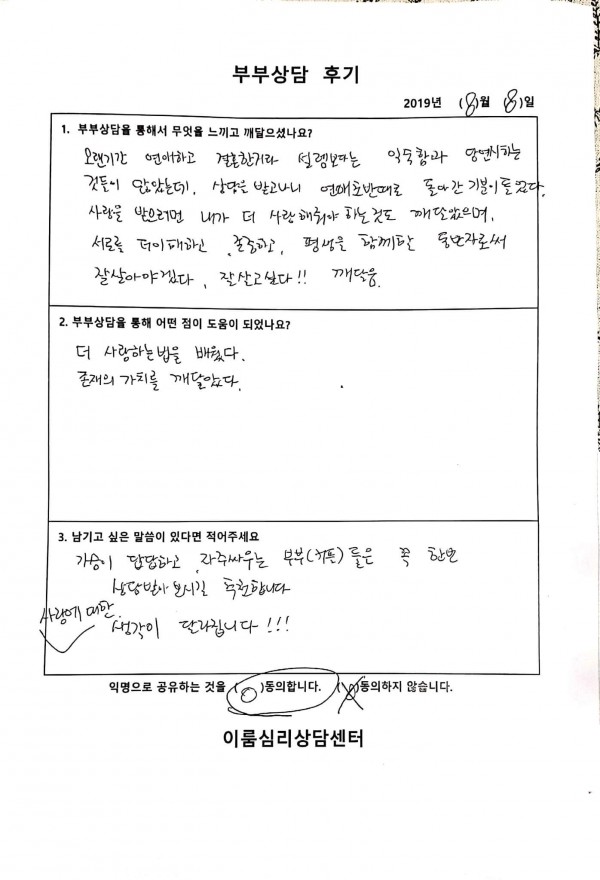 부부상담 후기
2019년 (8)월 (8)일
1. 부부상담을 통해서 무엇을 느끼고 깨달으셨나요?
오랜기간 연애하고 결혼한거라 설렘보다는 익숙함과 당연시하는
것들이 많았는데, 상담을 받고나니 연애초반때로 돌아간 기분이 들었다.
사랑을 받으려면 내가 더 사랑해줘야 하는것도 깨달았으며,
서로를 더 이해하고, 존중하고, 평생을 함께할 동반자로써
잘살아야겠다, 잘살고싶다!! 깨달음.
2. 부부상담을 통해 어떤 점이 도움이 되었나요?
더 사랑하는법을 배웠다.
존재의 가치를 깨달았다.
3. 남기고 싶은 말씀이 있다면 적어주세요
가슴이 답답하고 자주싸우는 부부(커플)들은 꼭 한번
상담받아 보시길 추천합니다
사랑에 대한
생각이 달라집니다!!!
익명으로 공유하는 것을 (O)동의합니다. ( )동의하지 않습니다.
이룸심리상담센터